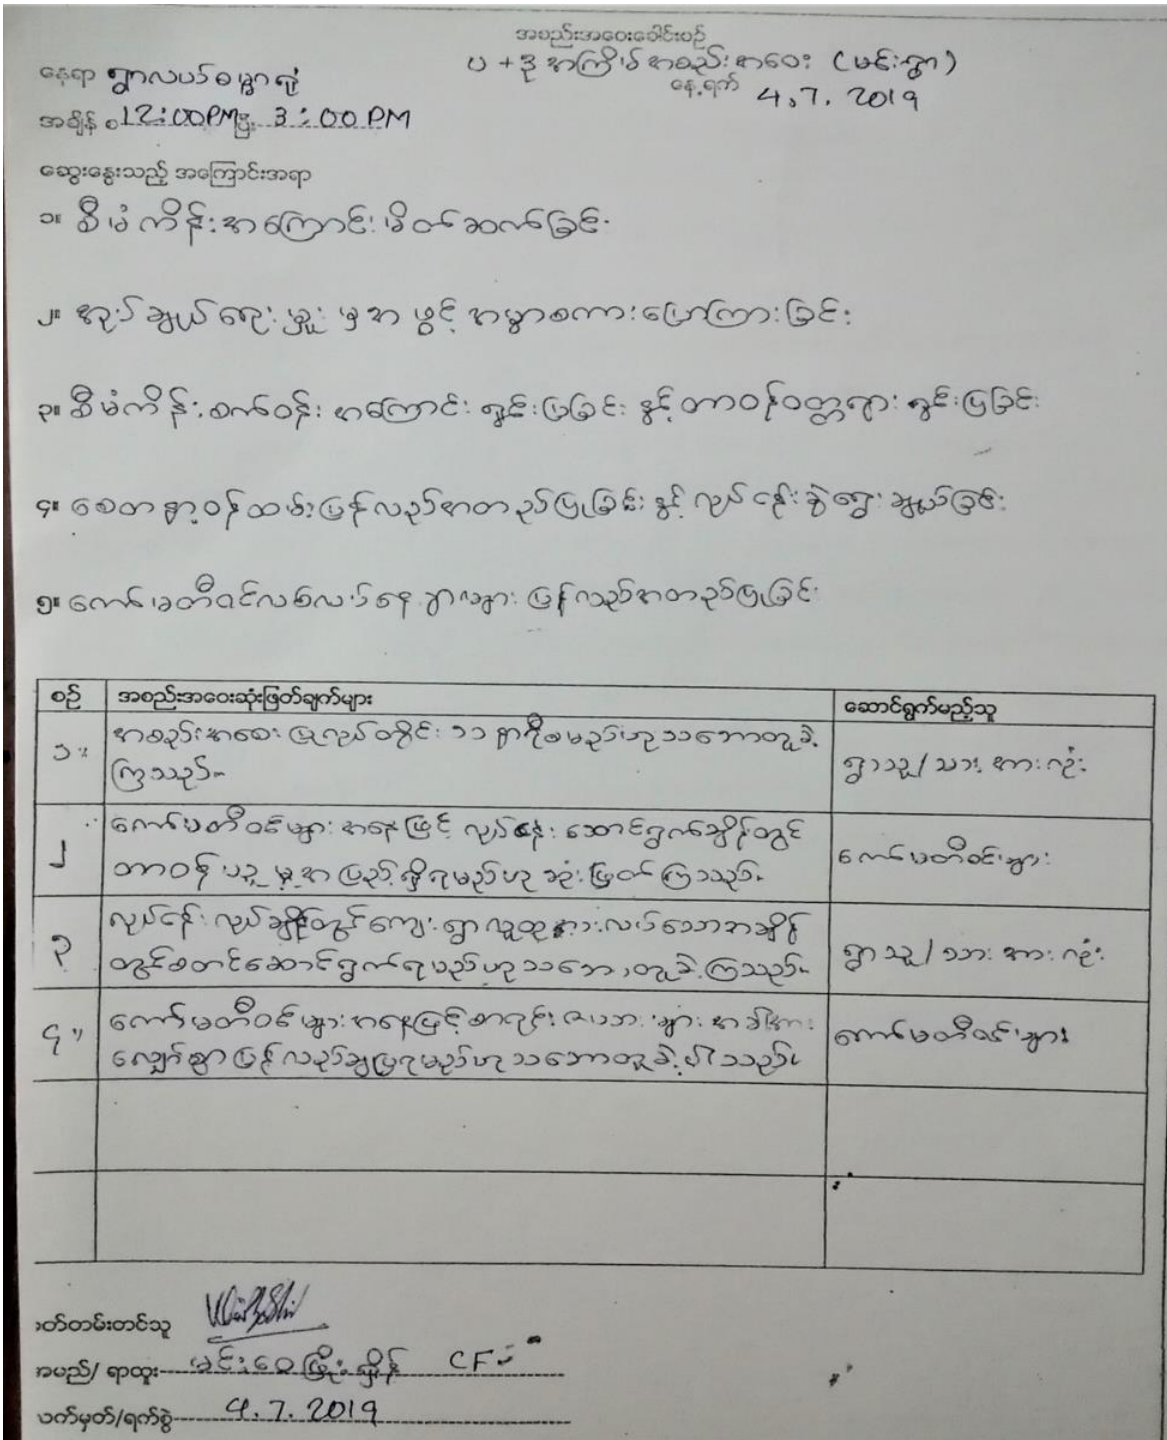 အစည်းအဝေးခေါင်းစဉ်
ပ + ဒု အကြိမ် အစည်းအဝေး (မင်းရွာ)
နေရာ ရွာလယ်ဓမ္မာရုံ
နေ့ရက် 4.7.2019
အချိန် 12:00PM မှ 3:00 PM
ဆွေးနွေးသည့် အကြောင်းအရာ
၁။ စီမံကိန်းအကြောင်း မိတ်ဆက်ခြင်း
၂။ အုပ်ချုပ်ရေးမှူးမှ အဖွင့် အမှာစကားပြောကြားခြင်း
၃။ စီမံကိန်းစက်ဝန်း အကြောင်း ရှင်းပြခြင်း နှင့် တာဝန်ဝတ္တရား ရှင်းပြခြင်း
၄။ စေတနာ့ဝန်ထမ်းပြန်လည်အတည်ပြုခြင်း နှင့် လုပ်ငန်းခွဲရွေးချယ်ခြင်း
၅။ ကော်မတီဝင်လစ်လပ်နေရာများ ပြန်လည်အတည်ပြုခြင်း
စဉ် အစည်းအဝေးဆုံးဖြတ်ချက်များ ဆောင်ရွက်မည့်သူ
၁။ အစည်းအဝေး ပြုလုပ်တိုင်း ၁၁ နာရီစမည်ဟုသဘောတူခဲ့
ကြသည်။ ရွာသူ/သား အားလုံး
၂ ကော်မတီဝင်များ အနေဖြင့် လုပ်ငန်း ဆောင်ရွက်ချိန်တွင်
တာဝန်ယူမှုအပြည့်ရှိရမည်ဟု ဆုံးဖြတ်ကြသည်။ ကော်မတီဝင်များ
၃ လုပ်ငန်းလုပ်ချိန်တွင်ကျေးရွာလူထုနားလပ်သောအချိန်
တွင်စတင်ဆောင်ရွက်ရမည်ဟုသဘောတူခဲ့ကြသည်။ ရွာသူ/သား အားလုံး
၄။ ကော်မတီဝင်များအနေဖြင့်စာရင်းဇယားများ အခါအား
လျော်စွာပြန်လည်ချပြရမည်ဟုသဘောတူခဲ့ပါသည်။ ကော်မတီဝင်များ
တ်တမ်းတင်သူ
အမည်/ ရာထူး မင်းဝေဖြိုးရှိန် CF
လက်မှတ်/ရက်စွဲ 4.7.2019